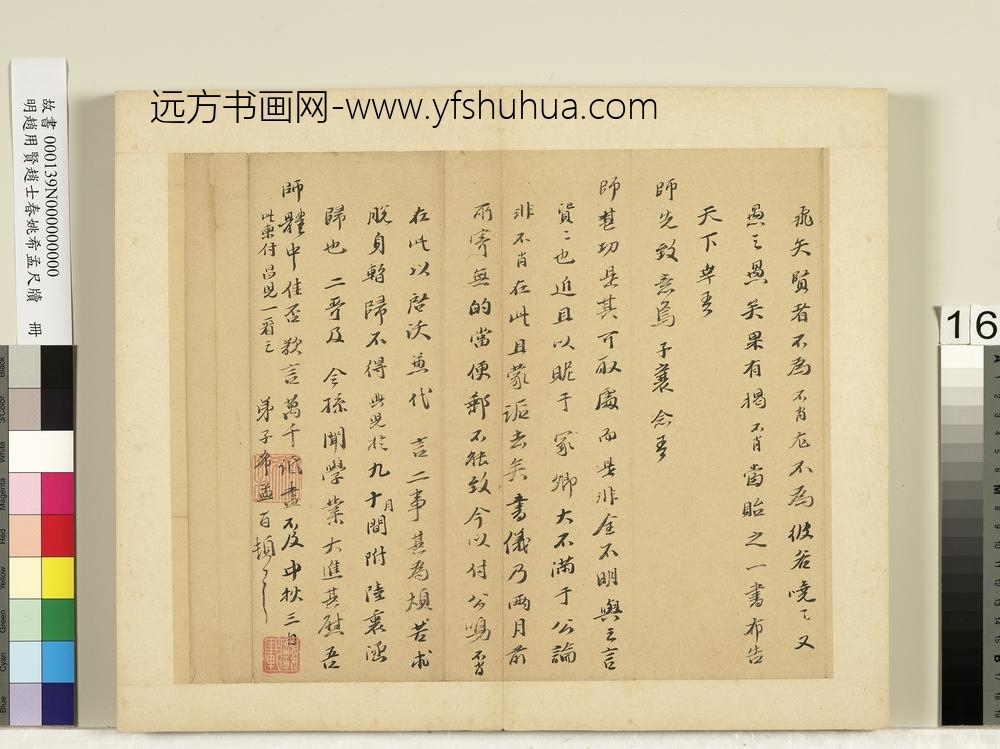 远方书画网-www.yfshuhua.com
故書 000139N000000000
明趙用賢趙士春姚希孟尺牘 冊
16
飛矢賢者不為不肖尤不為彼若嘵〻又
愚之愚矣果有揭不肖當貽之一書布告
天下
師先致意焉子襄念吾
師甚切是其可取處而是非全不明與之言
貿〻也近且以昵于冢卿大不滿于公論
非不肖在此且蒙詬去矣書儀乃兩月前
所寄無的當便郵不能致今以付公鳴不肖
在此以啓沃兼代言二事甚為煩苦求
脫身暫歸不得此兒於九十月間附陸裏涵
歸也二哥及令孫聞學業大進甚慰吾
師體中佳否欲言萬千縱盡不及中秋三日
此柬付昌兒一看之
弟子希孟百頓
Black
3/Color
White
Magenta
Red
Yellow
Green
Cyan
Blue